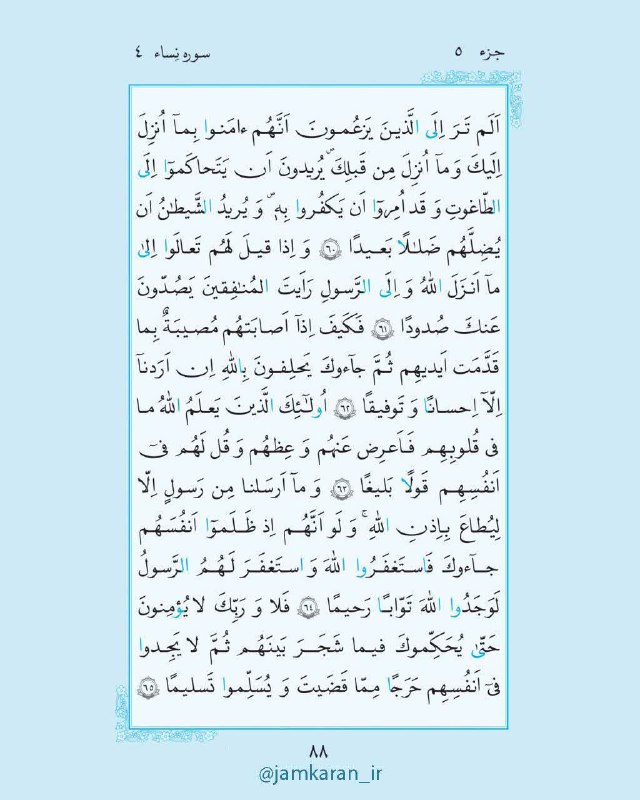 جزء ۵
سوره نساء ۴
اَلَم تَرَ اِلَى الَّذينَ يَزعُمونَ اَنَّهُم ءامَنوا بِمآ اُنزِلَ
اِلَيكَ وَ مآ اُنزِلَ مِن قَبلِكَ يُريدونَ اَن يَتَحاكَموٓا اِلَى
الطّاغوتِ وَ قَد اُمِروٓا اَن يَكفُروا بِهِ وَ يُريدُ الشَّيطٰنُ اَن
يُضِلَّهُم ضَلٰلًا بَعيدًا ﴿۶۰﴾ وَ اِذا قيلَ لَهُم تَعالَوا اِلىٰ
مآ اَنزَلَ اللهُ وَ اِلَى الرَّسولِ رَاَيتَ المُنٰفِقينَ يَصُدّونَ
عَنكَ صُدودًا ﴿۶۱﴾ فَكَيفَ اِذآ اَصابَتهُم مُصيبَةٌ بِما
قَدَّمَت اَيديهِم ثُمَّ جآءوكَ يَحلِفونَ بِاللهِ اِن اَرَدنآ
اِلّآ اِحسانًا وَ تَوفيقًا ﴿۶۲﴾ اُولٰٓئِكَ الَّذينَ يَعلَمُ اللهُ ما
فى قُلوبِهِم فَاَعرِض عَنهُم وَ عِظهُم وَ قُل لَهُم فىٓ
اَنفُسِهِم قَولًا بَليغًا ﴿۶۳﴾ وَ مآ اَرسَلنا مِن رَسولٍ اِلّا
لِيُطاعَ بِاِذنِ اللهِ ۚ وَ لَو اَنَّهُم اِذ ظَلَموٓا اَنفُسَهُم
جآءوكَ فَاستَغفَرُوا اللهَ وَ استَغفَرَ لَهُمُ الرَّسولُ
لَوَجَدُوا اللهَ تَوّابًا رَحيمًا ﴿۶۴﴾ فَلا وَ رَبِّكَ لا يُؤمِنونَ
حَتّىٰ يُحَكِّموكَ فيما شَجَرَ بَينَهُم ثُمَّ لا يَجِدوا
فىٓ اَنفُسِهِم حَرَجًا مِمّا قَضَيتَ وَ يُسَلِّموا تَسليمًا ﴿۶۵﴾
۸۸
@jamkaran_ir